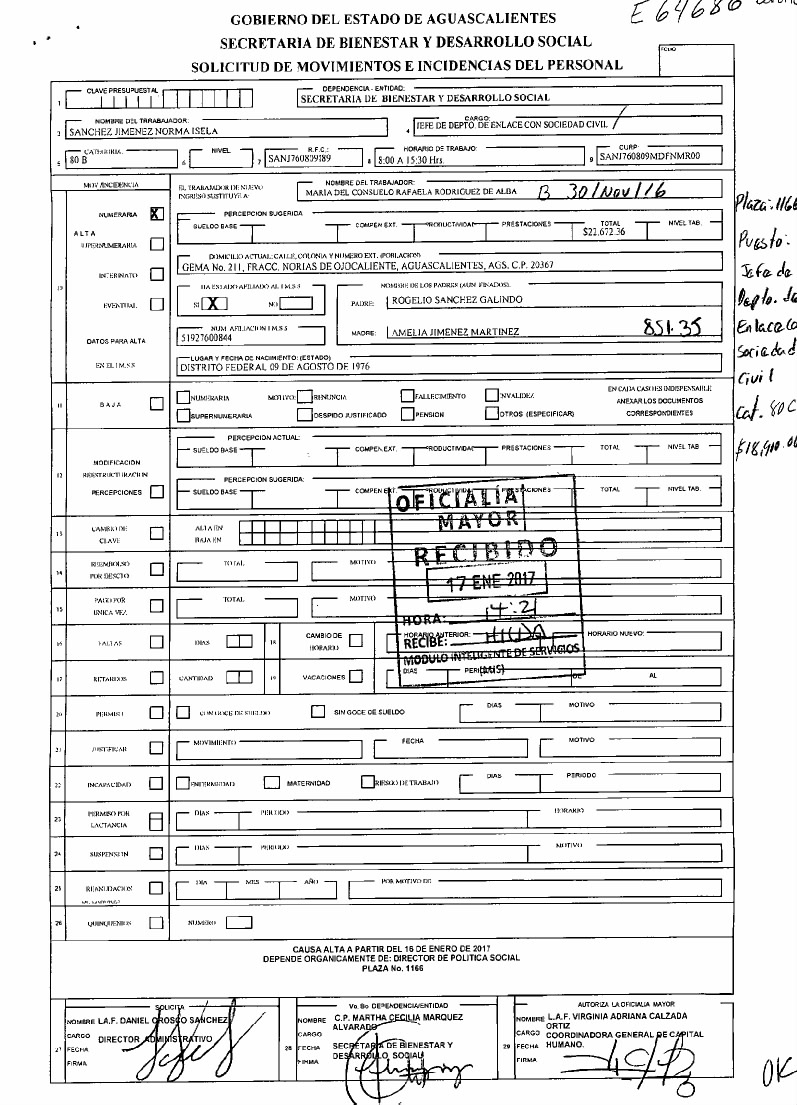 E64686
GOBIERNO DEL ESTADO DE AGUASCALIENTES
SECRETARIA DE BIENESTAR Y DESARROLLO SOCIAL
SOLICITUD DE MOVIMIENTOS E INCIDENCIAS DEL PERSONAL
FOLIO
1 CLAVE PRESUPUESTAL
DEPENDENCIA - ENTIDAD:
SECRETARIA DE BIENESTAR Y DESARROLLO SOCIAL
3 NOMBRE DEL TRABAJADOR:
SANCHEZ JIMENEZ NORMA ISELA
4 CARGO:
JEFE DE DEPTO. DE ENLACE CON SOCIEDAD CIVIL
5 CATEGORIA: 80 B
6 NIVEL
7 R.F.C.: SANJ760809J89
8 HORARIO DE TRABAJO: 8:00 A 15:30 Hrs.
9 CURP: SANJ760809MDFNMR00
MOV/INCIDENCIA
EL TRABAJADOR DE NUEVO INGRESO SUSTITUYE A:
NOMBRE DEL TRABAJADOR:
MARIA DEL CONSUELO RAFAELA RODRIGUEZ DE ALBA B 30/Nov/16
NUMERARIA X
PERCEPCION SUGERIDA
SUELDO BASE COMPEN EXT. PRODUCTIVIDAD PRESTACIONES TOTAL NIVEL TAB.
$22,672.36
ALTA
SUPERNUMERARIA
DOMICILIO ACTUAL: CALLE, COLONIA Y NUMERO EXT. (POBLACION)
GEMA No. 211, FRACC. NORIAS DE OJOCALIENTE, AGUASCALIENTES, AGS. C.P. 20367
INTERINATO
HA ESTADO AFILIADO AL I.M.S.S
SI X NO
NOMBRE DE LOS PADRES (AUN FINADOS):
PADRE: ROGELIO SANCHEZ GALINDO
EVENTUAL
DATOS PARA ALTA
EN EL I.M.S.S
NUM AFILIACION I.M.S.S
51927600844
MADRE: AMELIA JIMENEZ MARTINEZ 851.35
LUGAR Y FECHA DE NACIMIENTO: (ESTADO)
DISTRITO FEDERAL 09 DE AGOSTO DE 1976
Plaza: 1166
Puesto:
Jefa de
Depto. de
Enlace Co
Sociedad
Civil
Cat. 80C
$18,910.00
BAJA
NUMERARIA MOTIVO: RENUNCIA FALLECIMIENTO INVALIDEZ
SUPERNUMERARIA DESPIDO JUSTIFICADO PENSION OTROS (ESPECIFICAR)
EN CADA CASO ES INDISPENSABLE
ANEXAR LOS DOCUMENTOS
CORRESPONDIENTES
12 MODIFICACION
REESTRUCTURACION
PERCEPCIONES
PERCEPCION ACTUAL:
SUELDO BASE COMPEN EXT. PRODUCTIVIDAD PRESTACIONES TOTAL NIVEL TAB
PERCEPCION SUGERIDA:
SUELDO BASE COMPEN EXT. PRODUCTIVIDAD PRESTACIONES TOTAL NIVEL TAB.
OFICIALIA
MAYOR
RECIBIDO
17 ENE 2017
HORA: 14:21
RECIBE:
MODULO INTELIGENTE DE SERVICIOS
13 CAMBIO DE CLAVE
ALTA EN
BAJA EN
14 REEMBOLSO POR DESCTO TOTAL MOTIVO
15 PAGO POR UNICA VEZ TOTAL MOTIVO
16 FALTAS DIAS 18 CAMBIO DE HORARIO HORARIO ANTERIOR: HORARIO NUEVO:
17 RETARDOS CANTIDAD 19 VACACIONES DIAS DE AL
20 PERMISO CON GOCE DE SUELDO SIN GOCE DE SUELDO DIAS MOTIVO
21 JUSTIFICAR MOVIMIENTO FECHA MOTIVO
22 INCAPACIDAD ENFERMEDAD MATERNIDAD RIESGO DE TRABAJO DIAS PERIODO
23 PERMISO POR LACTANCIA DIAS PERIODO HORARIO
24 SUSPENSION DIAS PERIODO MOTIVO
25 REANUDACION DIA MES AÑO POR MOTIVO DE
26 QUINQUENIOS NUMERO
CAUSA ALTA A PARTIR DEL 16 DE ENERO DE 2017
DEPENDE ORGANICAMENTE DE: DIRECTOR DE POLITICA SOCIAL
PLAZA No. 1166
27 SOLICITA
NOMBRE L.A.F. DANIEL OROSCO SANCHEZ
CARGO DIRECTOR ADMINISTRATIVO
FECHA
FIRMA
28 Vo. Bo DEPENDENCIA/ENTIDAD
NOMBRE C.P. MARTHA CECILIA MARQUEZ ALVARADO
CARGO
FECHA SECRETARIA DE BIENESTAR Y DESARROLLO SOCIAL
FIRMA
29 AUTORIZA LA OFICIALIA MAYOR
NOMBRE L.A.F. VIRGINIA ADRIANA CALZADA ORTIZ
CARGO COORDINADORA GENERAL DE CAPITAL HUMANO.
FECHA
FIRMA
OK